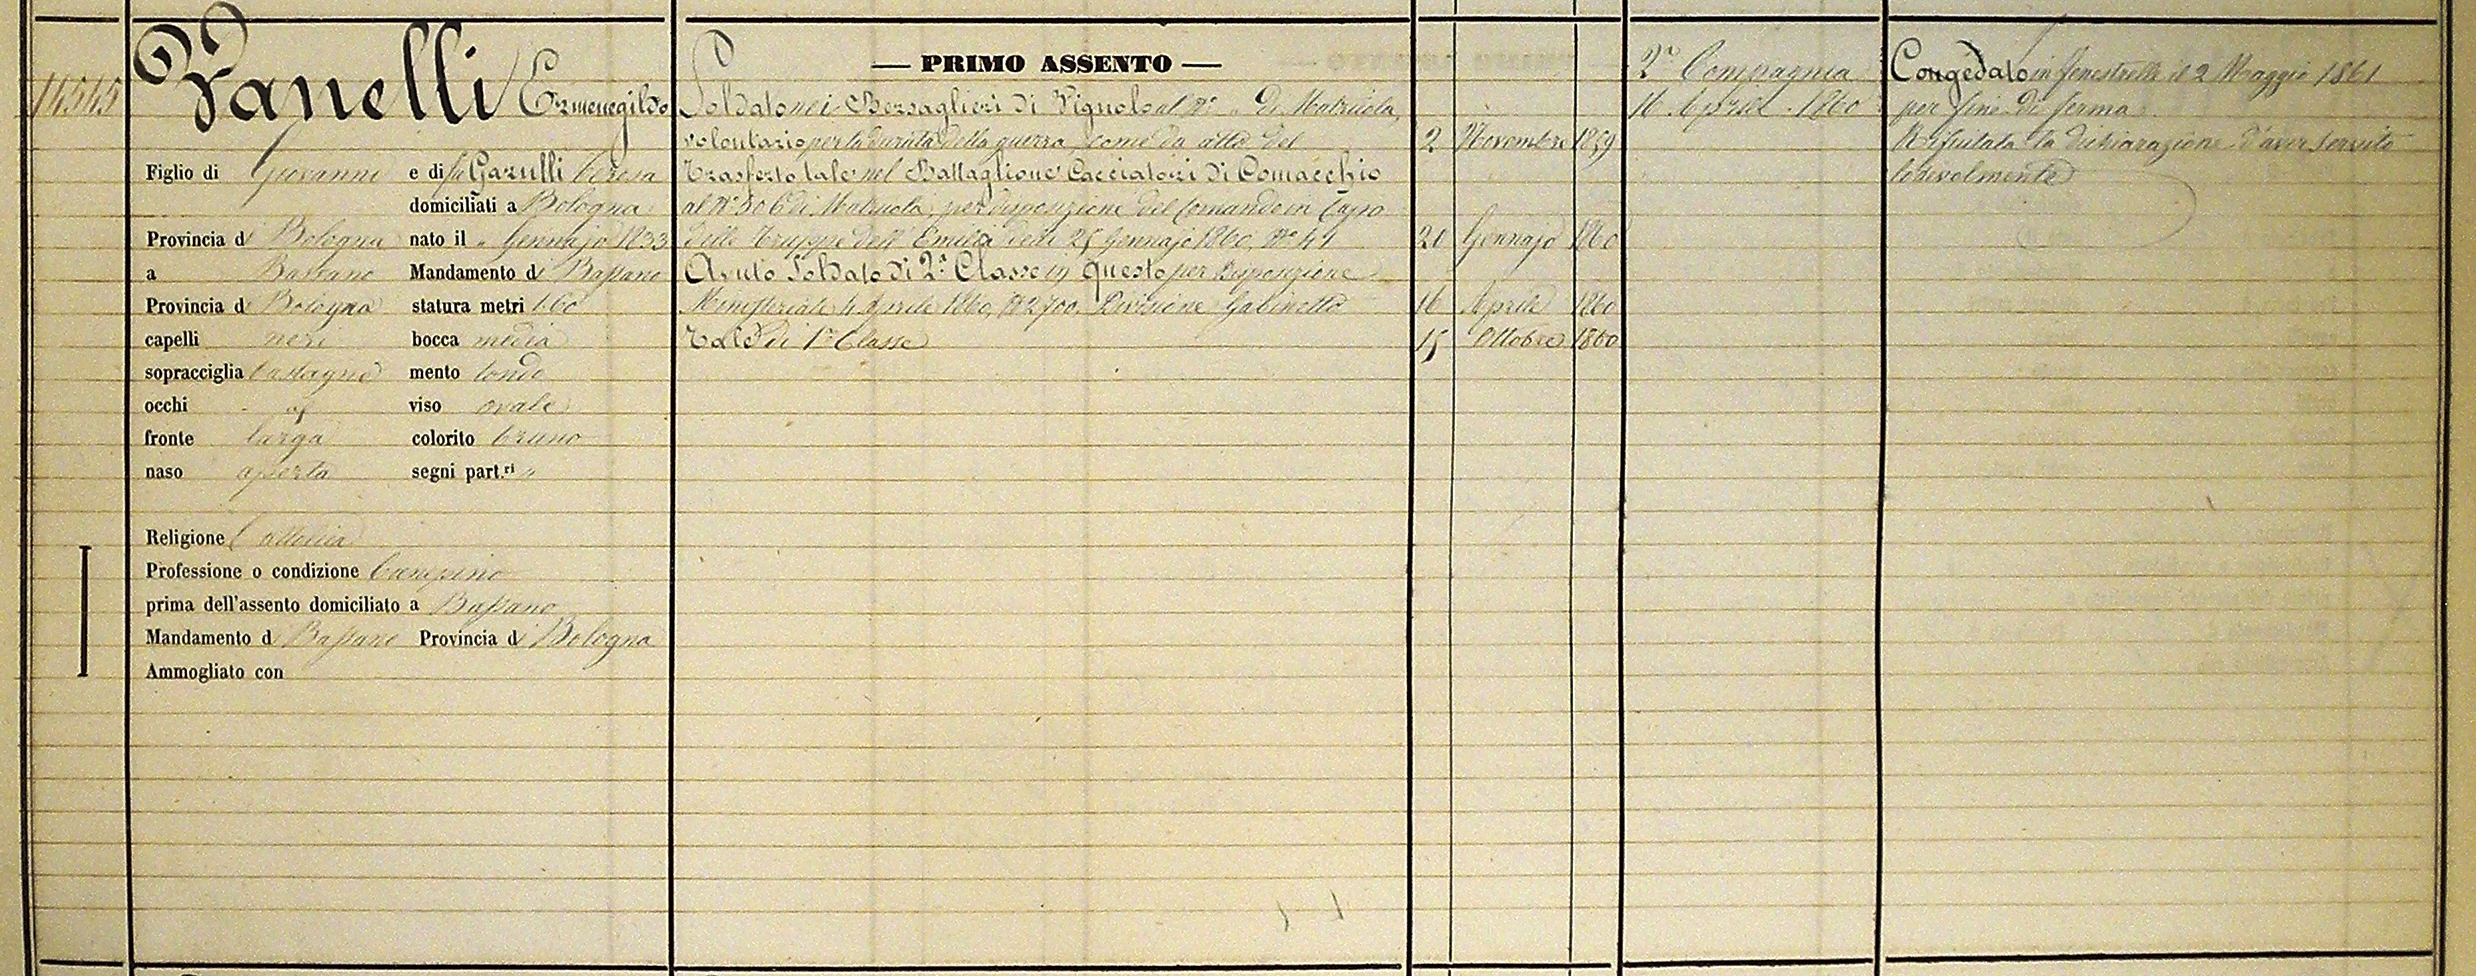 14545
Vanelli Ermenegildo
Figlio di Giovanni e di fu Garulli Teresa
domiciliati a Bologna
Provincia di Bologna nato il " Gennajo 1833
a Bazzano Mandamento di Bazzano
Provincia di Bologna statura metri 1.60
capelli neri bocca media
sopracciglia castagne mento tondo
occhi viso ovale
fronte larga colorito bruno
naso aperta segni part.ri "
Religione Cattolica
Professione o condizione Canepino
prima dell'assento domiciliato a Bazzano
Mandamento di Bazzano Provincia di Bologna
Ammogliato con
— PRIMO ASSENTO —
Soldato nei Bersaglieri di Vignola al N° " di Matricola,
volontario per la durata della guerra, come da atto del 2 Novembre 1859
Trasferto tale nel Battaglione Cacciatori di Comacchio
al N° 506 di Matricola, per disposizione del Comando in Capo
delle Truppe dell'Emilia delli 25 Gennajo 1860, N° 41 21 Gennajo 1860
Avuto Soldato di 2ª Classe in questo per Disposizione
Ministeriale 4 Aprile 1860, N° 2700. Divisione Gabinetto 16 Aprile 1860
Tale di 1ª Classe 15 Ottobre 1860
2ª Compagnia
16 Aprile 1860
Congedato in Fenestrelle il 2 Maggio 1861
per fine di ferma.
Rifiutata la dichiarazione d'aver servito
lodevolmente